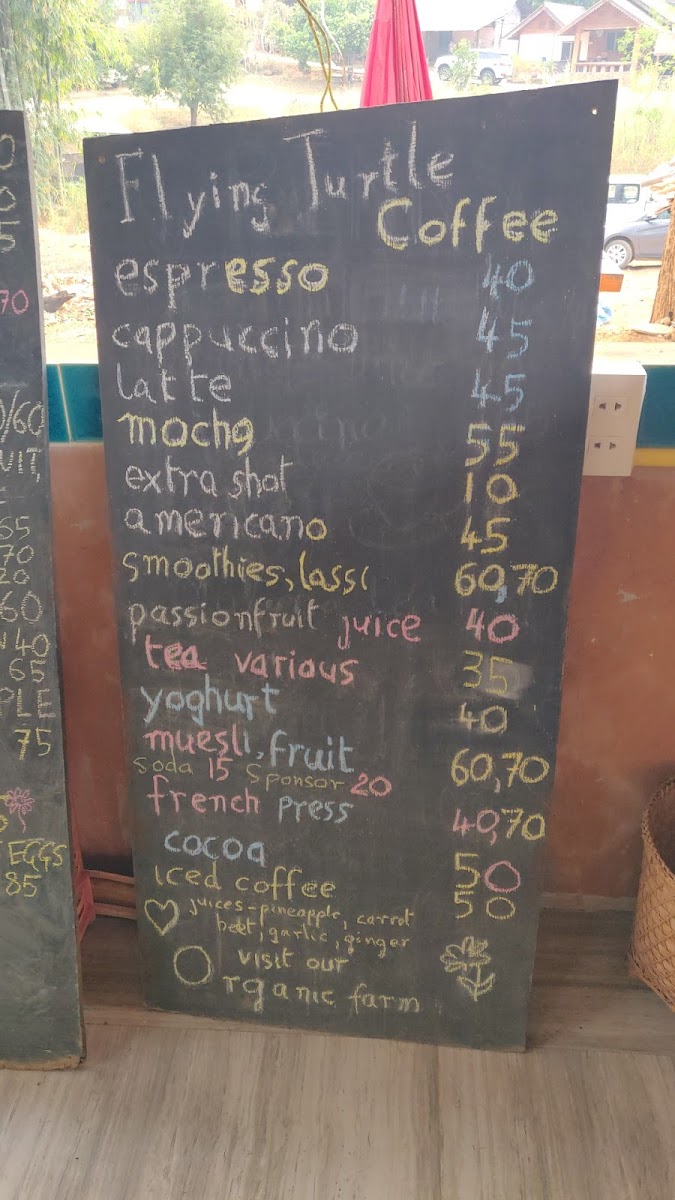 0
0
5
70
0/60
UIT,
65
70
20
60
40
65
PLE
75
EGGS
85
Flying Turtle
Coffee
espresso 40
cappuccino 45
latte 45
mocha 55
extra shot 10
americano 45
smoothies, lassi 60,70
passionfruit juice 40
tea various 35
yoghurt 40
muesli, fruit 60,70
soda 15 sponsor 20
french press 40,70
cocoa 50
iced coffee 50
juices-pineapple, carrot
beet, garlic, ginger
visit our
Organic farm